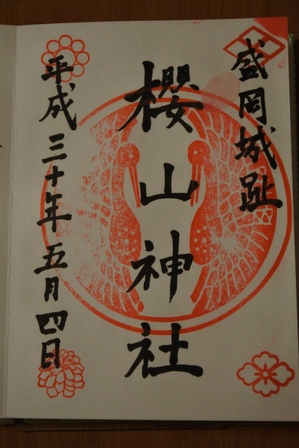 盛岡城趾
櫻山神社
平成三十年五月四日